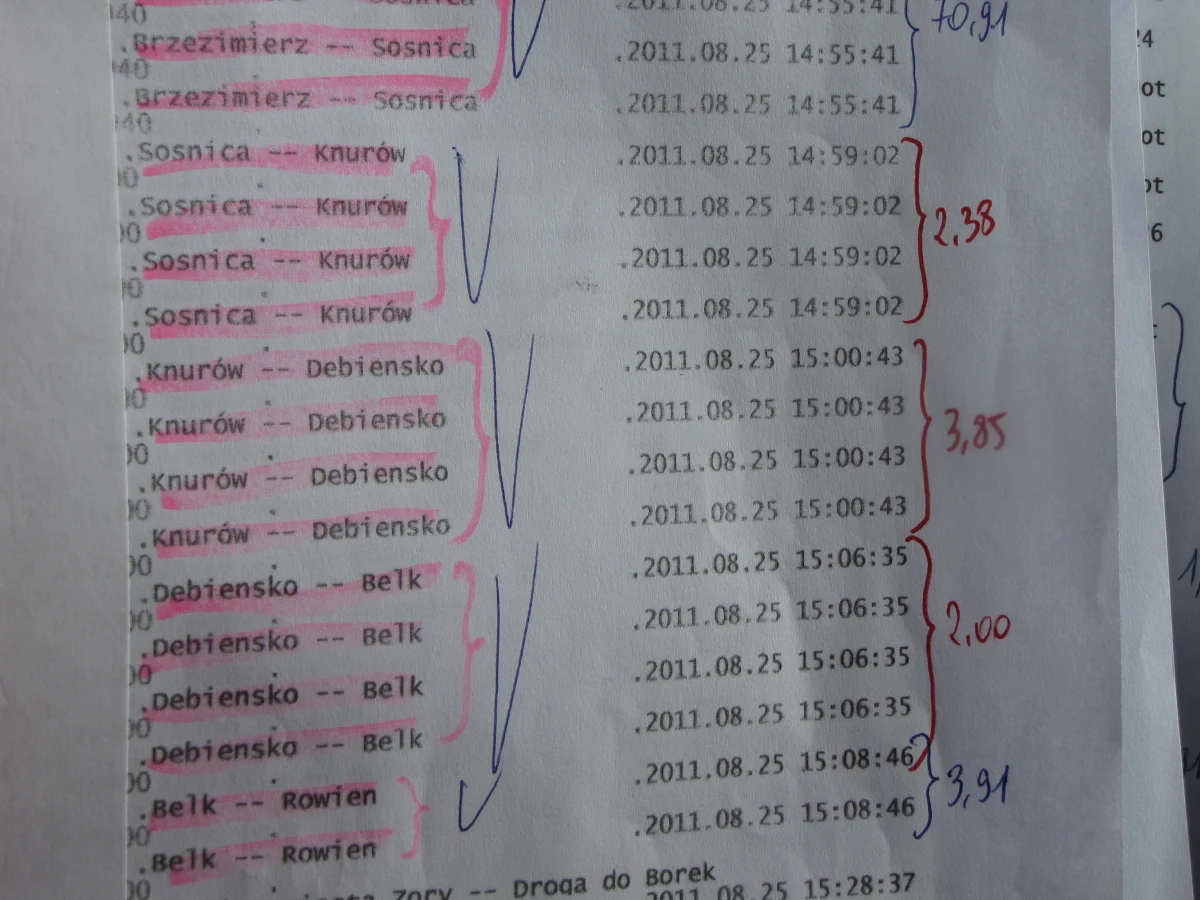 040
.2011.08.25 14:55:41
70,91
.Brzezimierz -- Sosnica .2011.08.25 14:55:41
040
.Brzezimierz -- Sosnica .2011.08.25 14:55:41
040
.Sosnica -- Knurów .2011.08.25 14:59:02
00
.Sosnica -- Knurów .2011.08.25 14:59:02
2,38
00
.Sosnica -- Knurów .2011.08.25 14:59:02
00
.Sosnica -- Knurów .2011.08.25 14:59:02
00
.Knurów -- Debiensko .2011.08.25 15:00:43
00
.Knurów -- Debiensko .2011.08.25 15:00:43
3,85
00
.Knurów -- Debiensko .2011.08.25 15:00:43
00
.Knurów -- Debiensko .2011.08.25 15:00:43
00
.Debiensko -- Belk .2011.08.25 15:06:35
00
.Debiensko -- Belk .2011.08.25 15:06:35
2,00
00
.Debiensko -- Belk .2011.08.25 15:06:35
00
.Debiensko -- Belk .2011.08.25 15:06:35
00
.Belk -- Rowien .2011.08.25 15:08:46
3,91
00
.Belk -- Rowien .2011.08.25 15:08:46
00
Zory -- Droga do Borek
2011.08.25 15:28:37
24
ot
ot
ot
6